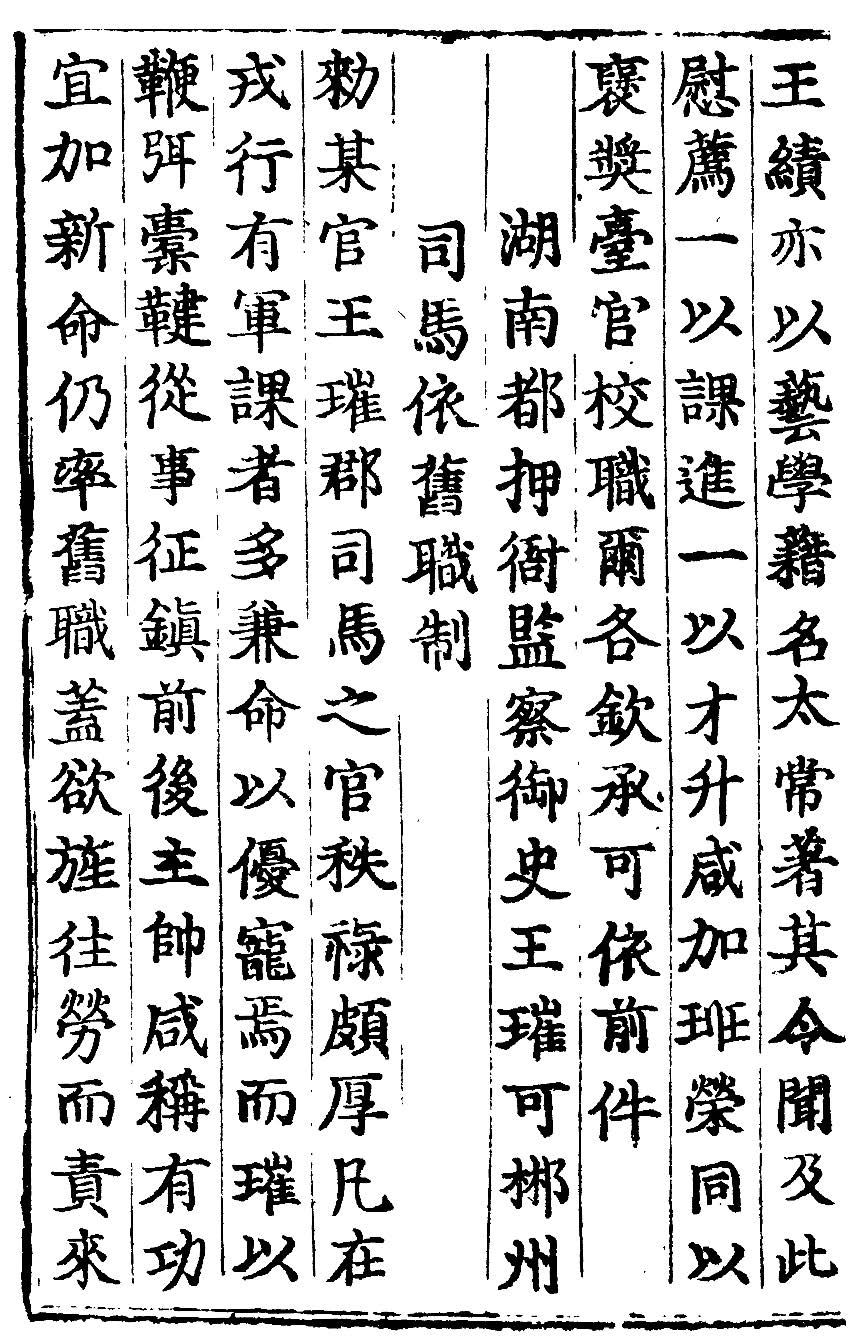 王績亦以藝學藉名太常著其令聞及此
慰薦一以課進一以才升咸加班榮同以
襃奬臺官校職爾各欽承可依前件
湖南都押衙監察御史王璀可郴州
司馬依舊職制
勑某官王璀郡司馬之官秩祿頗厚凡在
戎行有軍課者多兼命以優寵焉而璀以
鞭弭櫜鞬從事征鎭前後主帥咸稱有功
宜加新命仍率舊職蓋欲旌往勞而責來